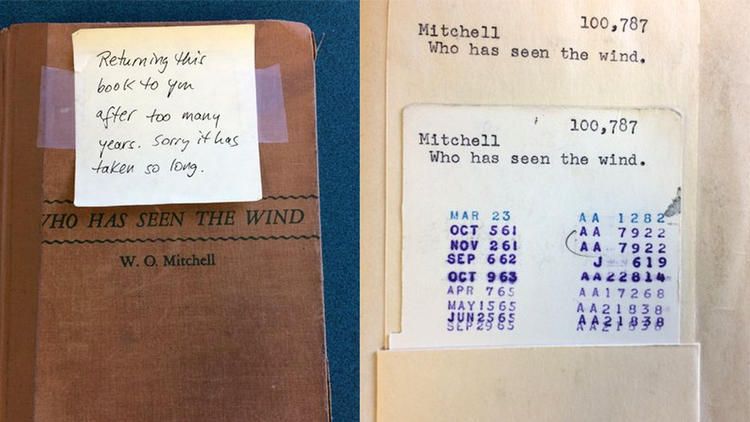 Returning this
book to you
after too many
years. Sorry it has
taken so long.
WHO HAS SEEN THE WIND
W. O. Mitchell
100,787
Mitchell
Who has seen the wind.
100,787
Mitchell
Who has seen the wind.
MAR 23 AA 1282
OCT 561 AA 7922
NOV 261 AA 7922
SEP 662 J 619
OCT 963 AA22814
APR 765 AA17268
MAY1565 AA21838
JUN2565 AA21838
SEP2965